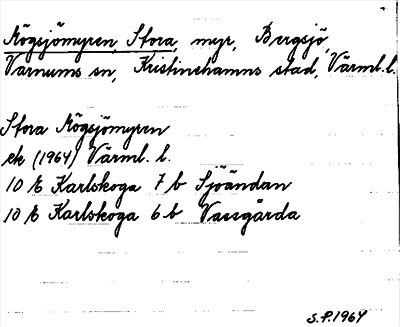 Kögsjömyren, Stora, myr, Bergsjö,
Varnums sn, Kristinehamns stad, Värml. l.
Stora Kögsjömyren
ek (1964) Värml. l.
10 E Karlskoga 7 b Sjöändan
10 E Karlskoga 6 b Vassgårda
S.P. 1964